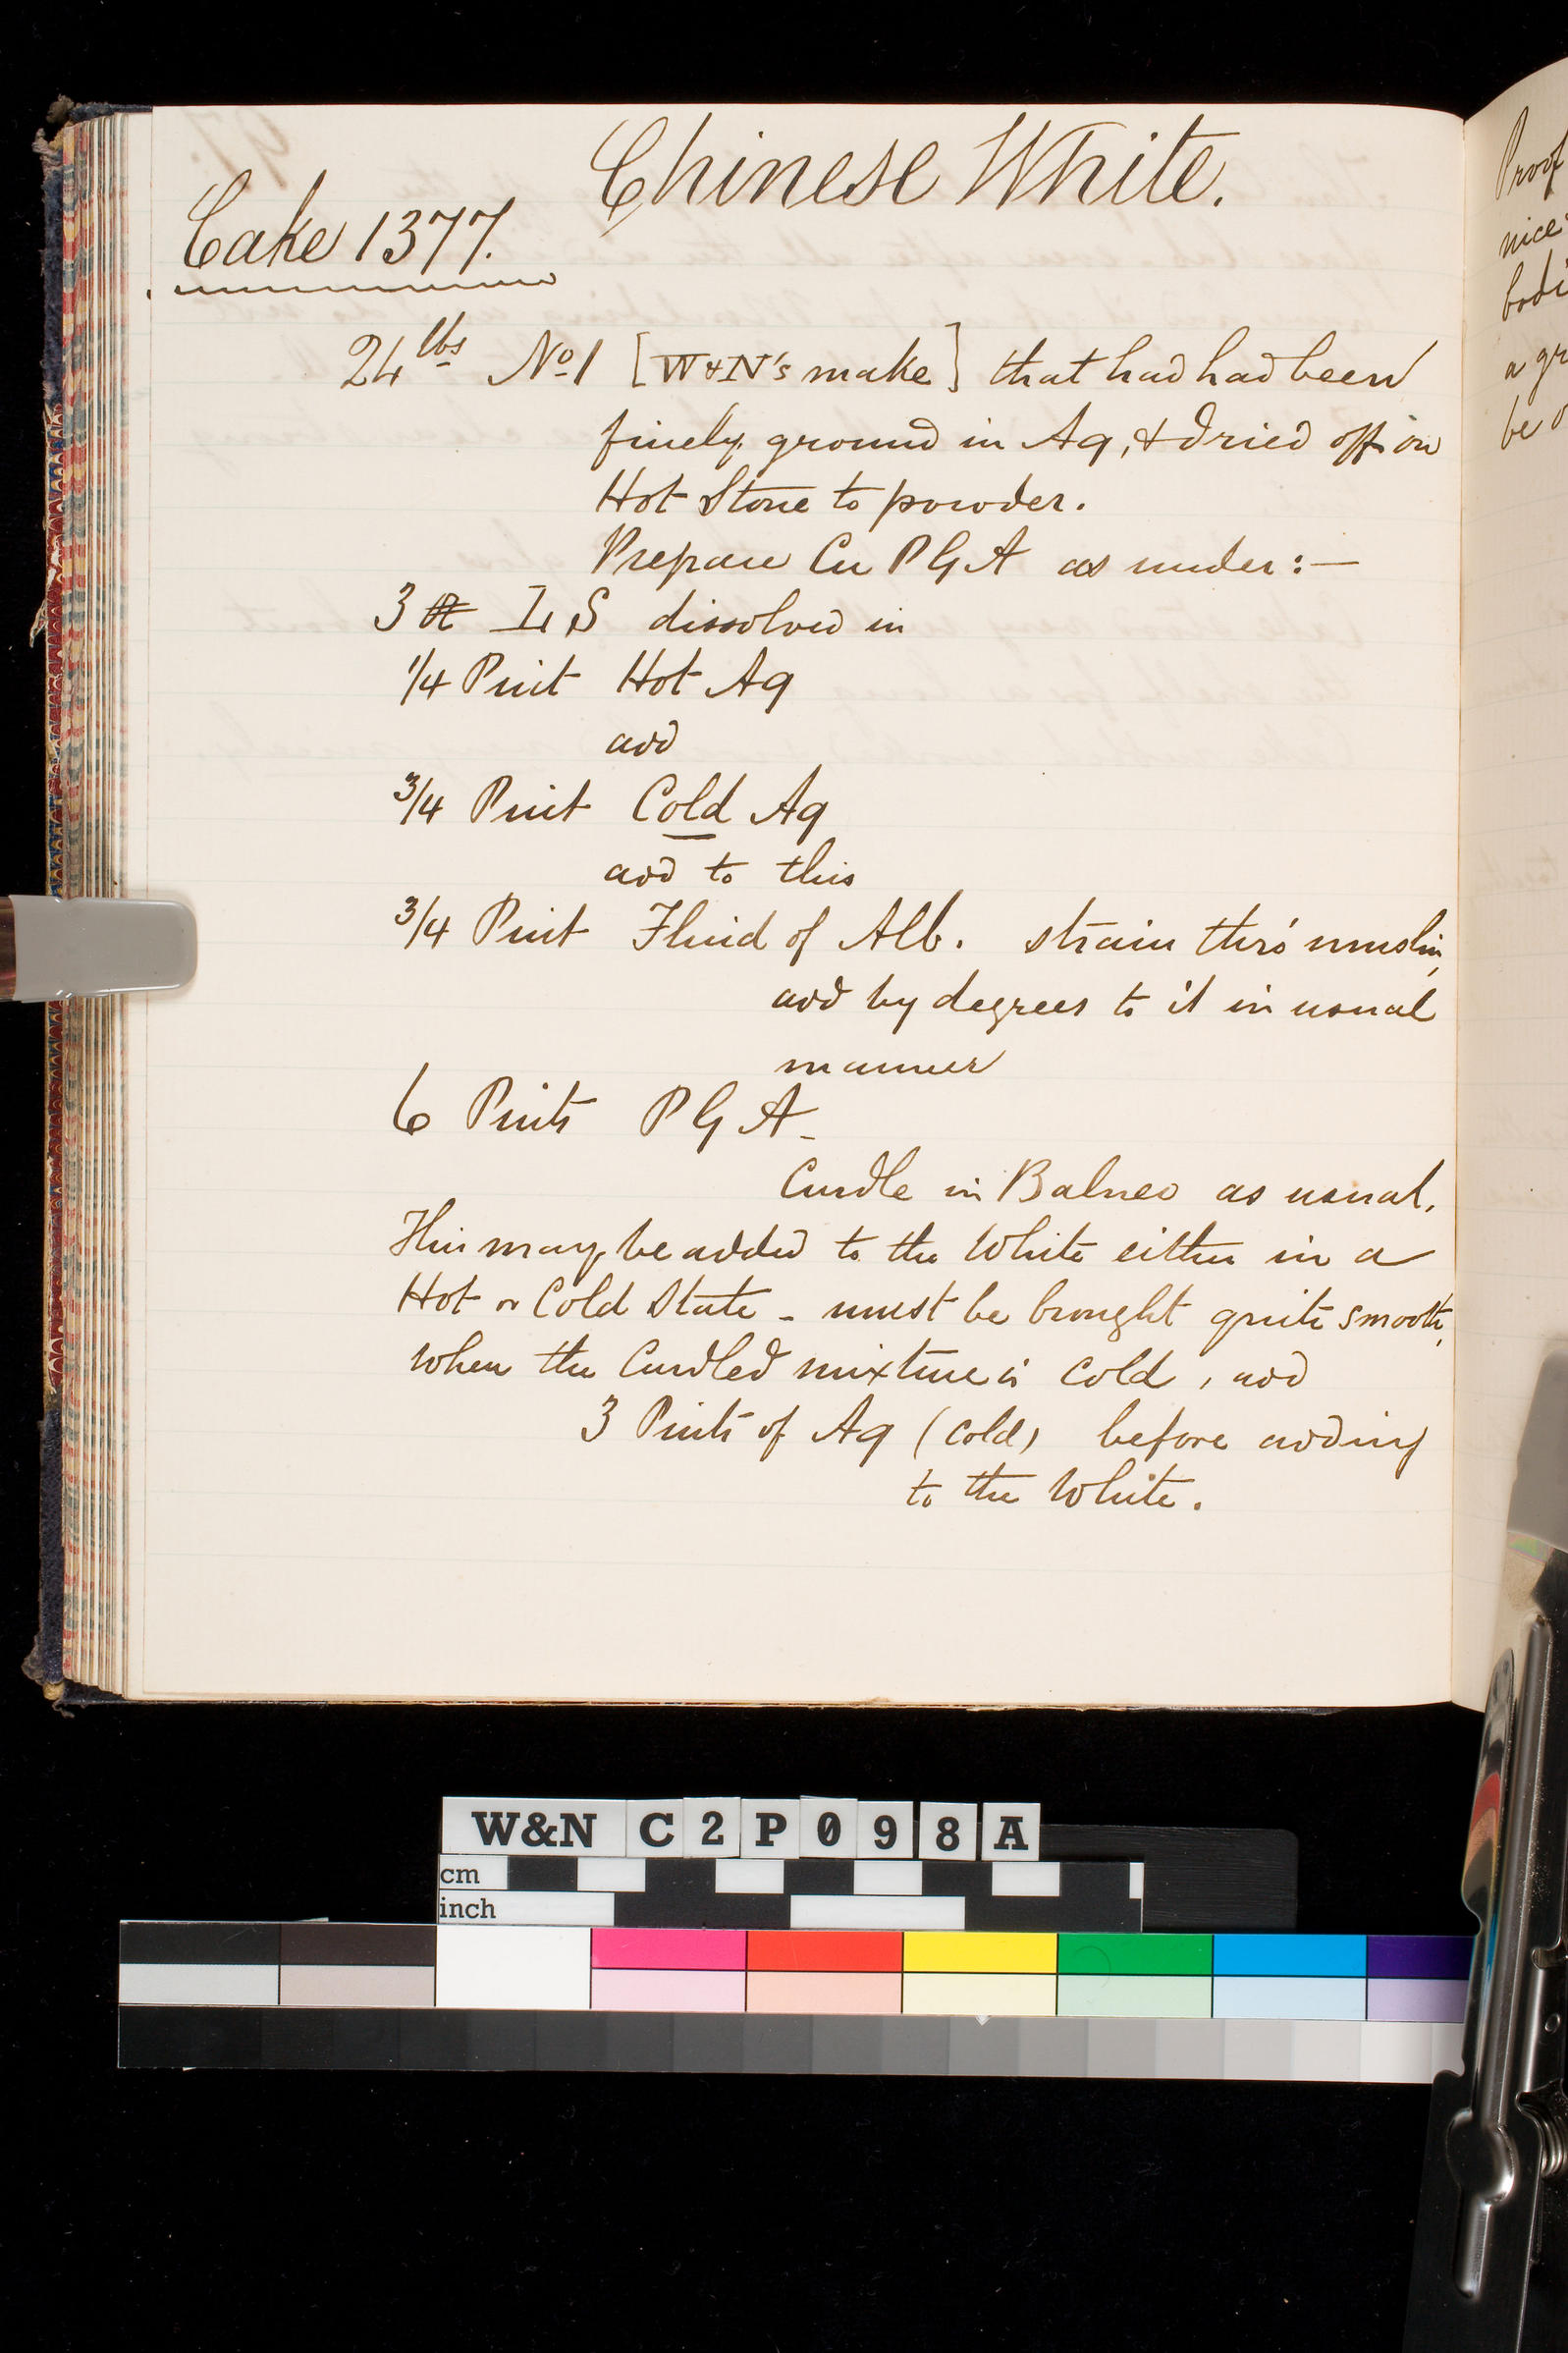 Chinese White.
Cake 1377.
24 lbs No 1 [W&N's make] that had had been
finely ground in Aq, & dried off on
Hot Stone to powder.
Prepare Cu P G A as under:—
3 L S dissolved in
1/4 Pint Hot Aq
add
3/4 Pint Cold Aq
add to this
3/4 Pint Fluid of Alb. strain thro' muslin,
add by degrees to it in usual
manner
6 Pints P G A -
Curdle in Balneo as usual.
This may be added to the White either in a
Hot or Cold State - must be brought quite smooth,
when the Curdled mixture is Cold, add
3 Pints of Aq (Cold) before adding
to the White.
Proof
nice
bodi
a gr
be o
W&N C2P098A
cm
inch